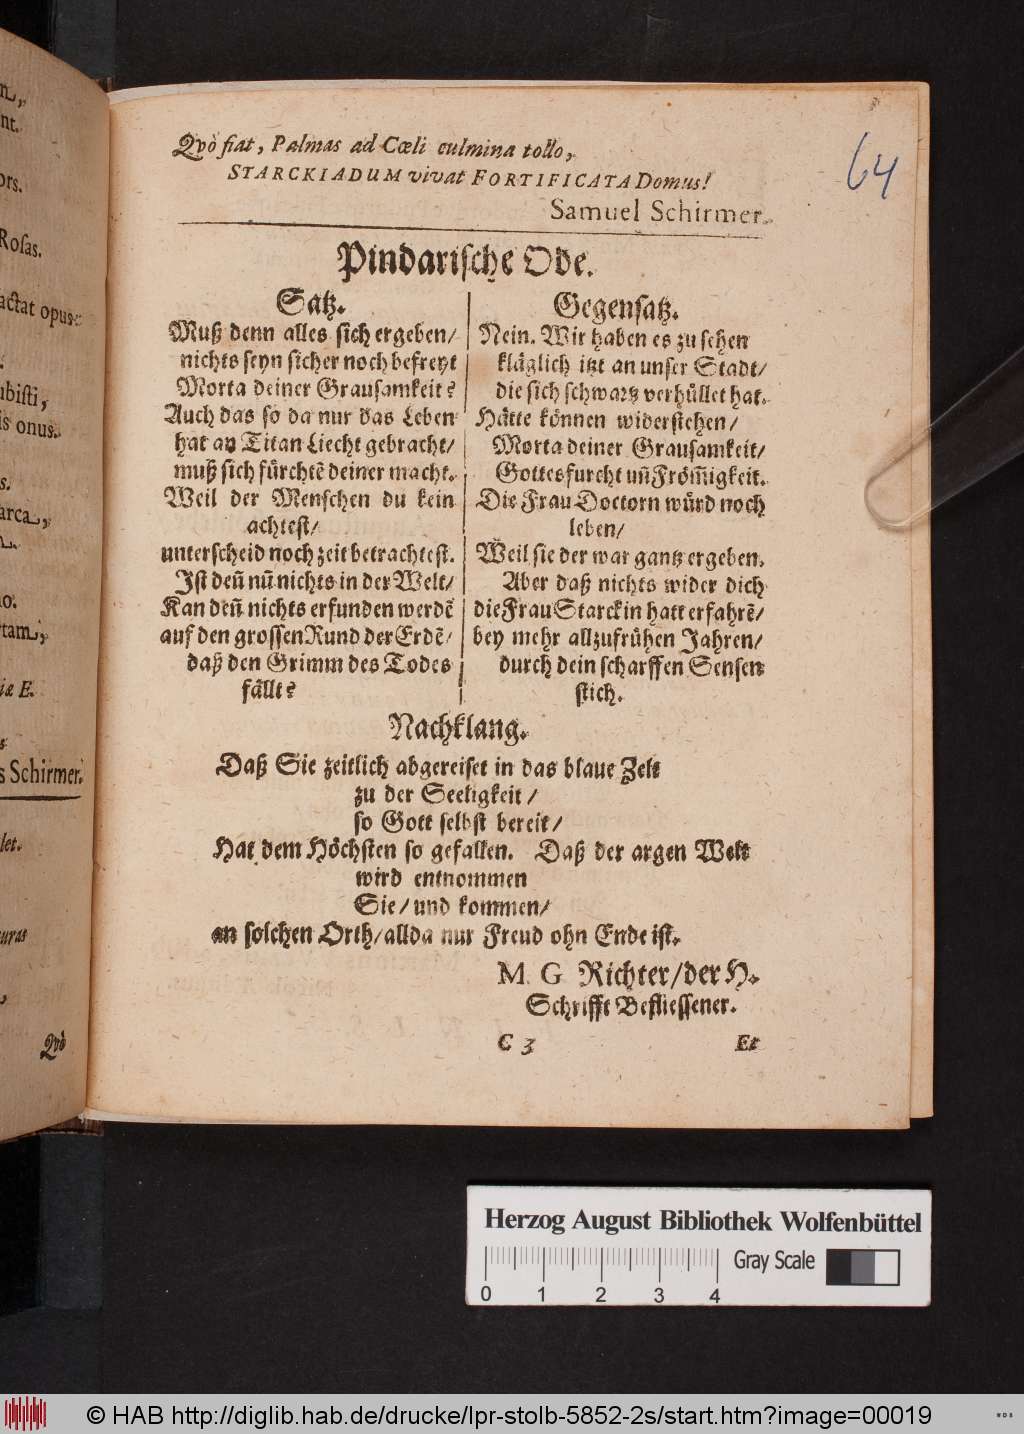 n,
nt.
ors.
Rosas.
actat opus:
ubisti,
is onus.
s.
arca,
no.
rtam,
iæ E.
s
s Schirmer.
let.
uras
,
Qvò
64
Qvò fiat, Palmas ad Cœli culmina tollo,
STARCKIADUM vivat FORTIFICATA Domus!
Samuel Schirmer.
Pindarische Ode.
Satz.
Muß denn alles sich ergeben/
nichts seyn sicher noch befreyt
Morta deiner Grausamkeit?
Auch das so da nur das Leben
hat an Titan Liecht gebracht/
muß sich fürchtẽ deiner macht.
Weil der Menschen du kein
achtest/
unterscheid noch zeit betrachtest.
Ist deñ nũ nichts in der Welt/
Kan deñ nichts erfunden werdẽ
auf den grossen Rund der Erdẽ/
daß den Grimm des Todes
fällt?
Gegensatz.
Nein. Wir haben es zu sehen
kläglich itzt an unser Stadt/
die sich schwartz verhüllet hat.
Hätte können widerstehen/
Morta deiner Grausamkeit/
Gottesfurcht uñ From̃igkeit.
Die Frau Doctorn würd noch
leben/
Weil sie der war gantz ergeben.
Aber daß nichts wider dich
die Frau Starckin hatt erfahrẽ/
bey mehr allzufrühen Jahren/
durch dein scharffen Sensen
stich.
Nachklang.
Daß Sie zeitlich abgereiset in das blaue Zelt
zu der Seeligkeit/
so Gott selbst bereit/
Hat dem Höchsten so gefallen. Daß der argen Welt
wird entnommen
Sie/ und kommen/
an solchen Orth/ allda nur Freud ohn Ende ist.
M. G Richter/ der H.
Schrifft Befliessener.
C 3
Et
Herzog August Bibliothek Wolfenbüttel
Gray Scale
0 1 2 3 4
© HAB http://diglib.hab.de/drucke/lpr-stolb-5852-2s/start.htm?image=00019